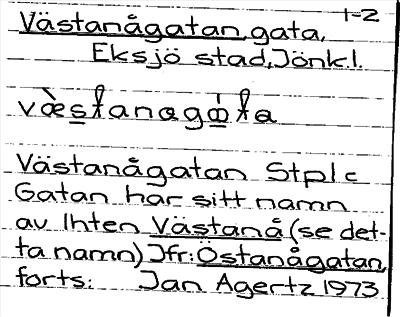 1-2
Västanågatan, gata,
Eksjö stad, Jönk.l.
væ̀stanagáta
Västanågatan Stplc
Gatan har sitt namn
av Ihten Västanå (se det-
ta namn) Jfr: Östanågatan,
forts: Jan Agertz 1973